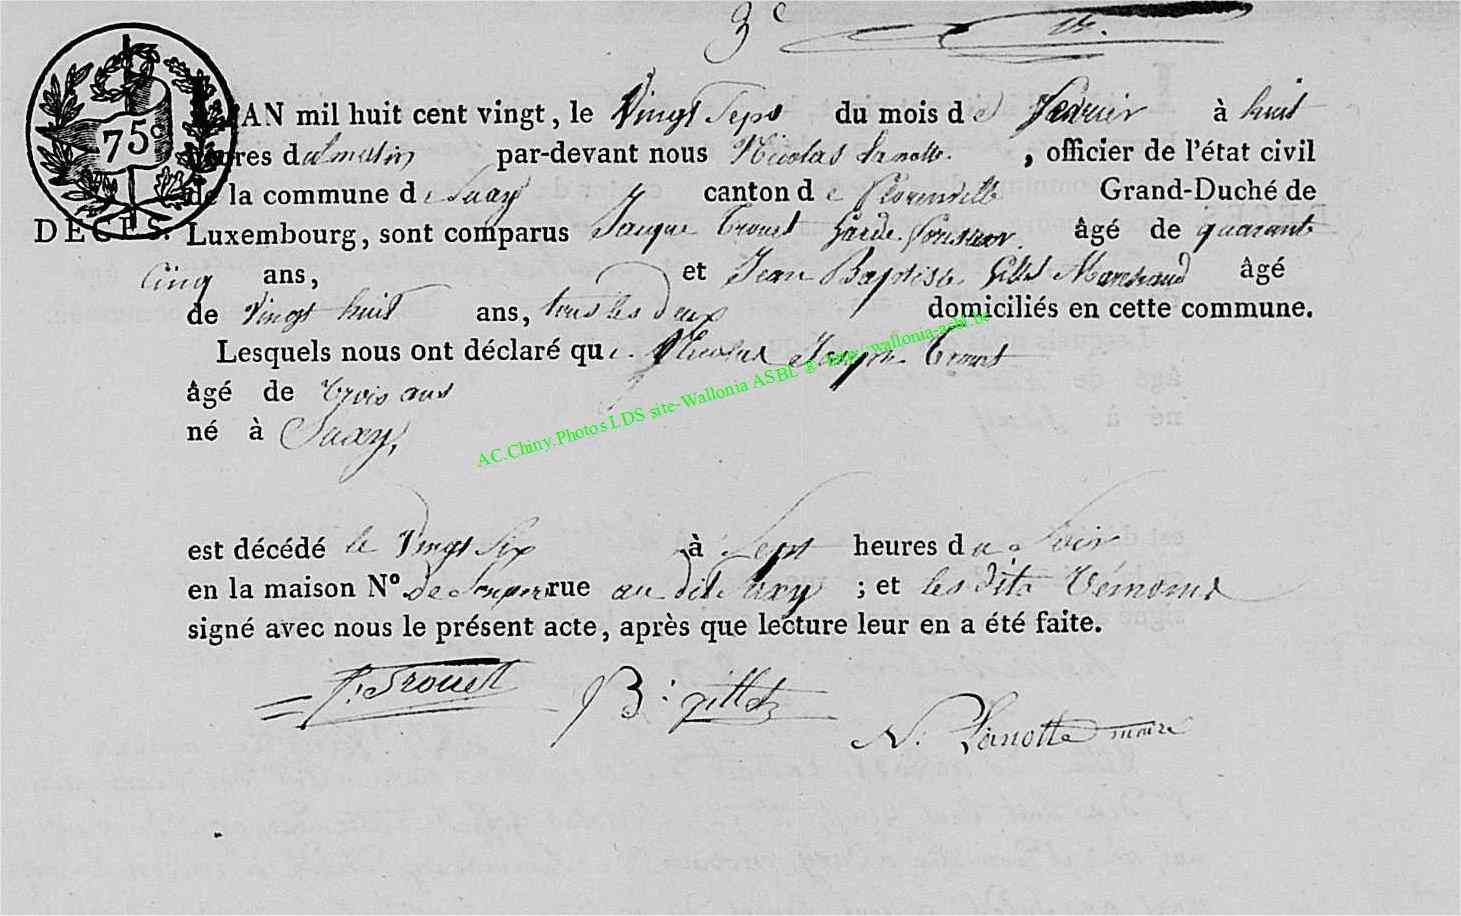 3e
75c
L'AN mil huit cent vingt, le Vingt Sept du mois de Fevrier à huit
heures du matin par-devant nous Nicolas Lanotte , officier de l'état civil
de la commune de Suxy canton de Florenville Grand-Duché de
DÉCÈS. Luxembourg, sont comparus Jacque Trouet Garde forestier âgé de quarante
Cinq ans, et Jean Baptiste Gillet Marchand âgé
de Vingt huit ans, tous les deux domiciliés en cette commune.
Lesquels nous ont déclaré que Nicolas Joseph Trouet
âgé de trois ans
né à Suxy,
AC.Chiny.Photos LDS site-Wallonia ASBL @ http:wallonia-asbl.be
est décédé le Vingt Six à Sept heures du Soir
en la maison N° de Son pere rue au dit Suxy ; et les dits témoins
signé avec nous le présent acte, après que lecture leur en a été faite.
J. Trouet
B. gillet
N. Lanotte maire